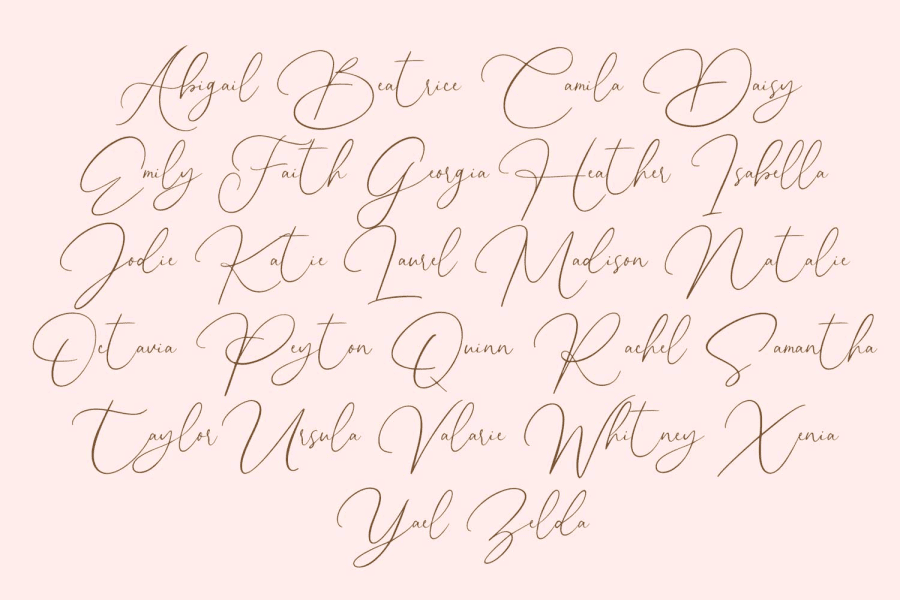 Abigail Beatrice Camila Daisy
Emily Faith Georgia Heather Isabella
Jodie Katie Laurel Madison Natalie
Octavia Peyton Quinn Rachel Samantha
Taylor Ursula Valarie Whitney Xenia
Yael Zelda